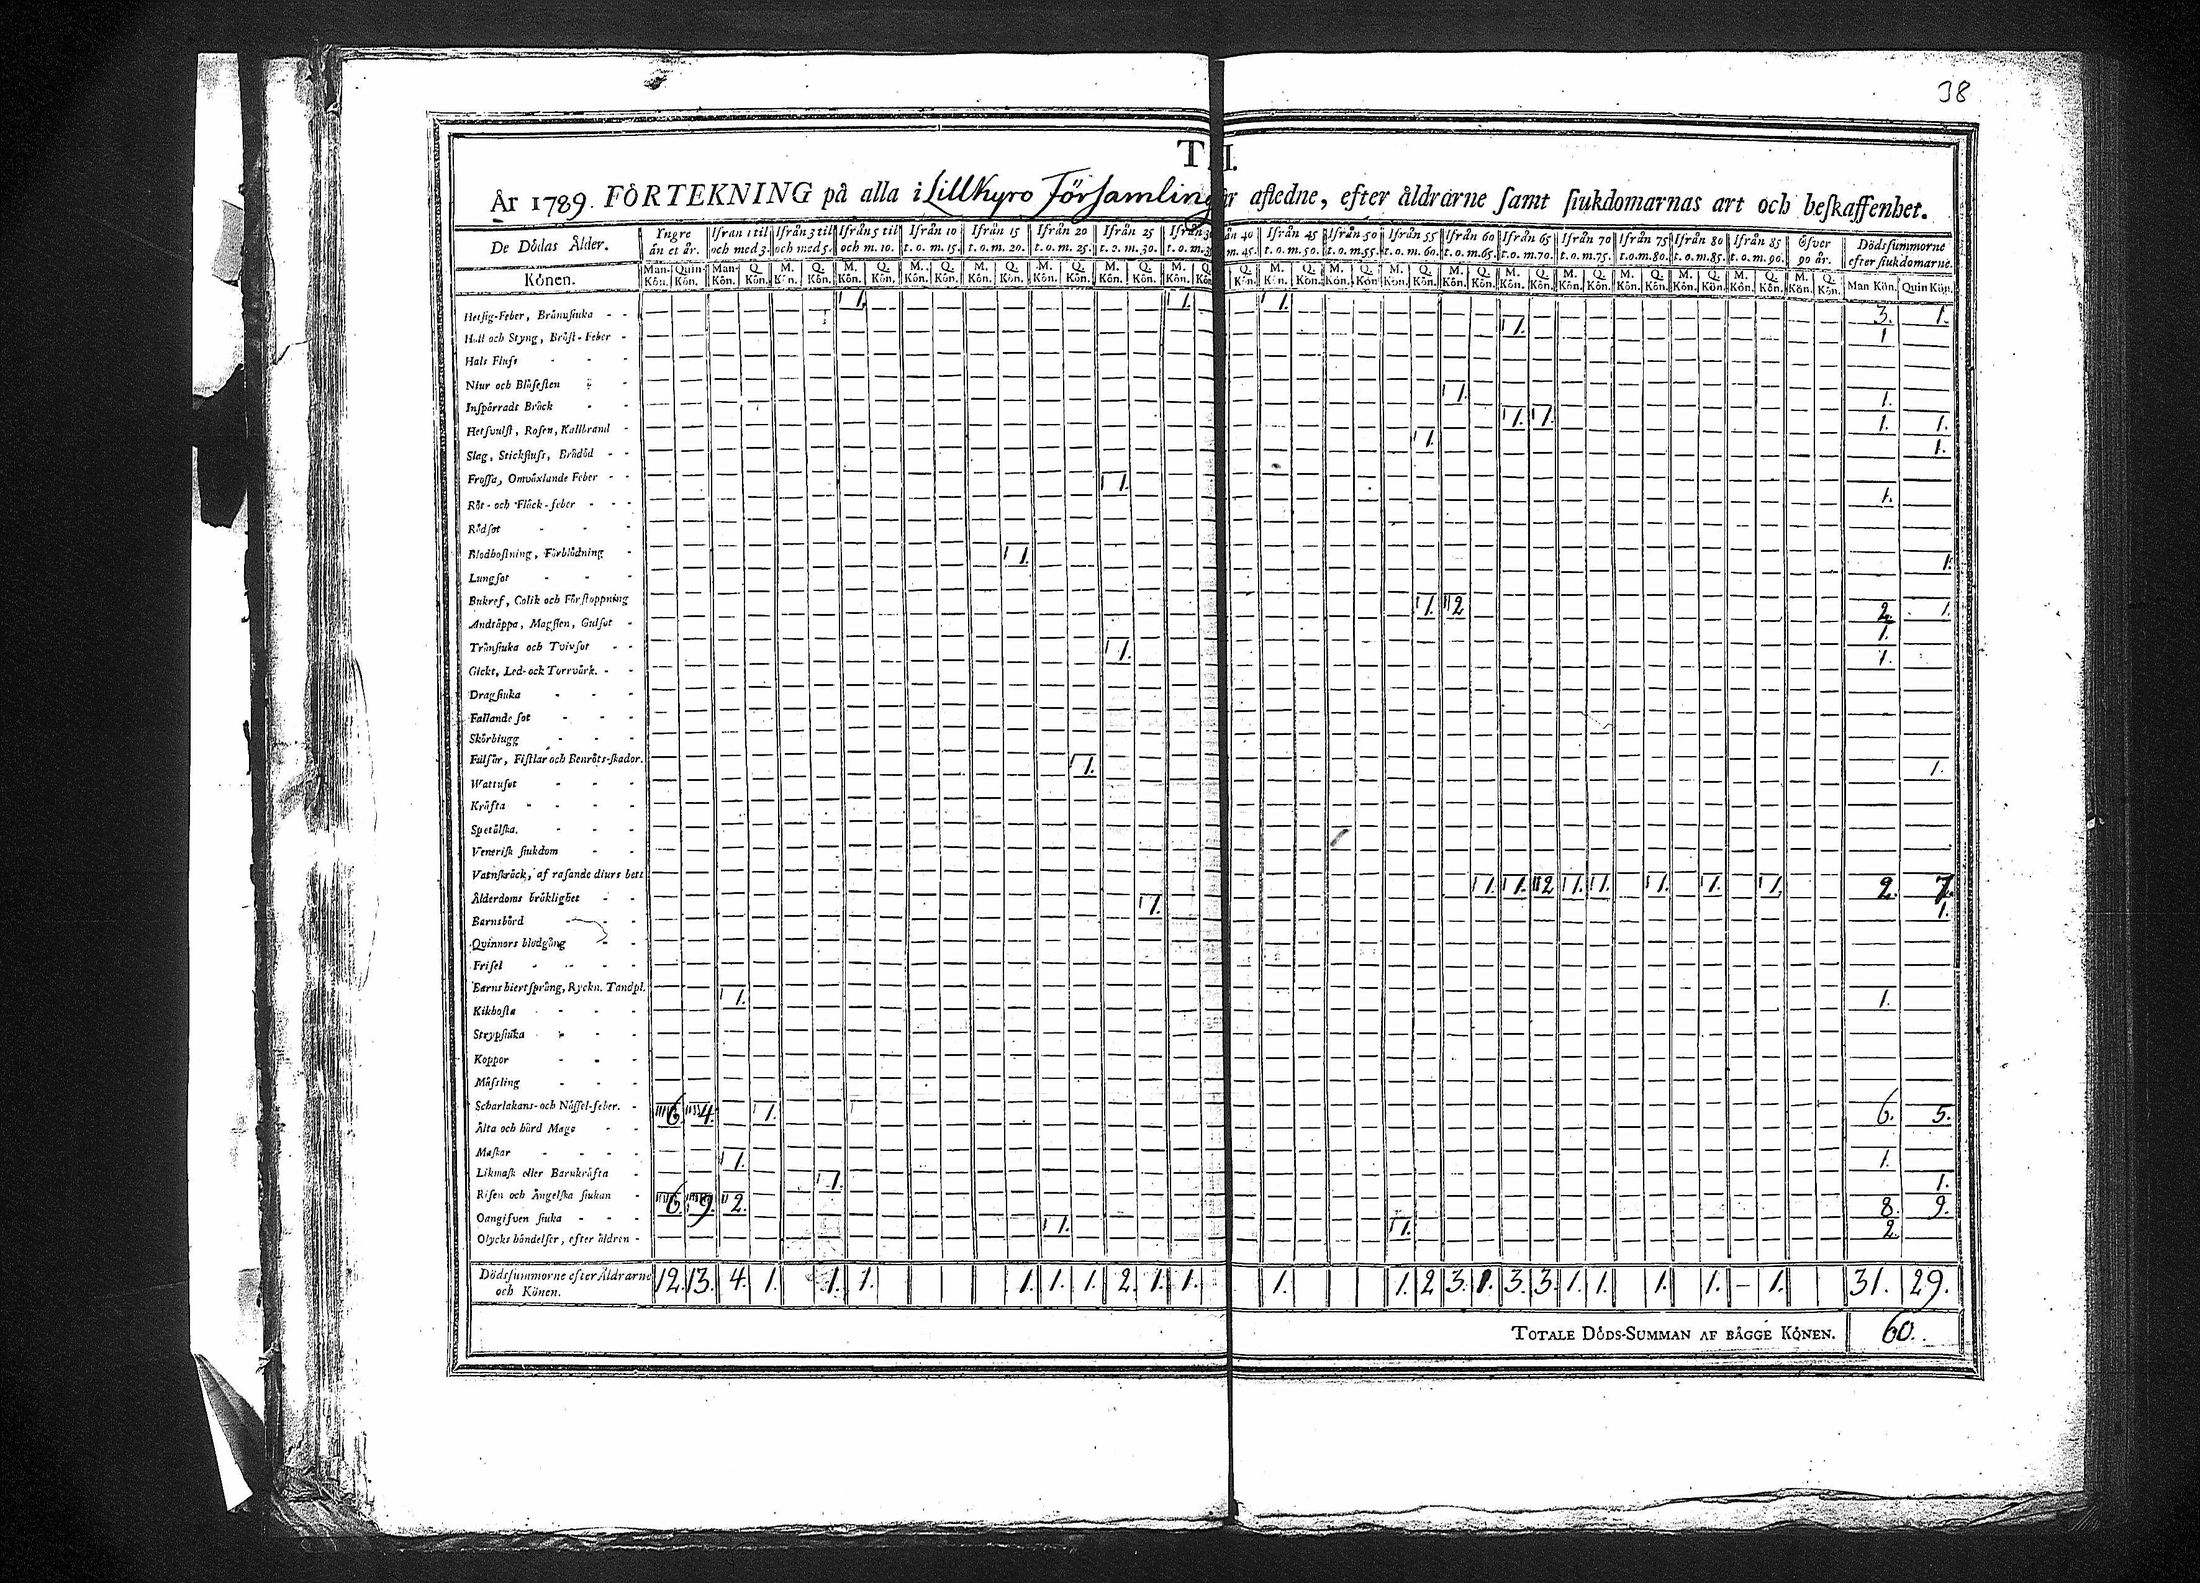 38
T II.
År 1789. FÖRTEKNING på alla i Lillkyro Församling afledne, efter åldrarne samt siukdomarnas art och beskaffenhet.
De Dödas Ålder. Yngre än et år. Ifrån 1 til och med 3. Ifrån 3 til och med 5. Ifrån 5 til och m. 10. Ifrån 10 t. o. m. 15. Ifrån 15 t. o. m. 20. Ifrån 20 t. o. m. 25. Ifrån 25 t. o. m. 30. Ifrån 40 m. 45. Ifrån 45 t. o. m. 50. Ifrån 50 t. o. m. 55. Ifrån 55 t. o. m. 60. Ifrån 60 t. o. m. 65. Ifrån 65 t. o. m. 70. Ifrån 70 t. o. m. 75. Ifrån 75 t. o. m. 80. Ifrån 80 t. o. m. 85. Ifrån 85 t. o. m. 90. Öfver 90 år. Dödssummorne efter siukdomarne.
Könen. Man-Kön. Quin-Kön. Man-Kön. Q. Kön. M. Kön. Q. Kön. M. Kön. Q. Kön. M. Kön. Q. Kön. M. Kön. Q. Kön. M. Kön. Q. Kön. M. Kön. Q. Kön. M. Kön. Q. Kön. Q. Kön. M. Kön. Q. Kön. M. Kön. Q. Kön. M. Kön. Q. Kön. M. Kön. Q. Kön. M. Kön. Q. Kön. M. Kön. Q. Kön. M. Kön. Q. Kön. M. Kön. Q. Kön. M. Kön. Q. Kön. M. Kön. Q. Kön. Man Kön. Quin Kön.
Hetsig-Feber, Brännsiuka 1. 1. 1. 3. 1.
Håll och Styng, Bröst-Feber 1. 1
Hals Fluss
Niur och Blåsesten
Inspärradt Bråck 1. 1.
Hetsvulst, Rosen, Kallbrand 1. 1. 1. 1.
Slag, Stickfluss, Brådöd 1. 1.
Frossa, Omväxlande Feber
Röt- och Fläck-feber 1. 1.
Rödsot
Blodhostning, Förblödning
Lungsot 1. 1.
Bukref, Colik och Förstoppning
Andtäppa, Magsten, Gulsot 1. 2 2. 1.
Trånsiuka och Tvivsot 1.
Gickt, Led- och Torrvärk. 1. 1.
Dragsiuka
Fallande sot
Skörbiugg
Fulsår, Fistlar och Benröts-skador.
Wattusot 1. 1.
Kräfta
Spetälska.
Venerisk siukdom
Vatnskräck, af rasande diurs bett
Ålderdoms bräklighet 1. 1. 2 1. 1. 1. 1. 1. 2. 7.
Barnsbörd 1. 1.
Qvinnors blodgång
Frisel
Barns hiertsprång, Ryckn. Tandpl.
Kikhosta 1. 1.
Strypsiuka
Koppor
Mässling
Scharlakans- och Nässel-feber.
Älta och hård Mage 6 4. 1. 6. 5.
Maskar
Likmask eller Barnkräfta 1. 1.
Risen och Ängelska siukan 1. 1.
Oangifven siuka 6. 9. 2. 8. 9.
Olycks händelser, efter åldren 1. 1. 2.
Dödssummorne efter Åldrarne och Könen. 12. 13. 4. 1. 1. 1. 1. 1. 1. 2. 1. 1. 1. 1. 2 3. 1. 3. 3. 1. 1. 1. 1. – 1. 31. 29.
TOTALE DÖDS-SUMMAN AF BÄGGE KÖNEN. 60.